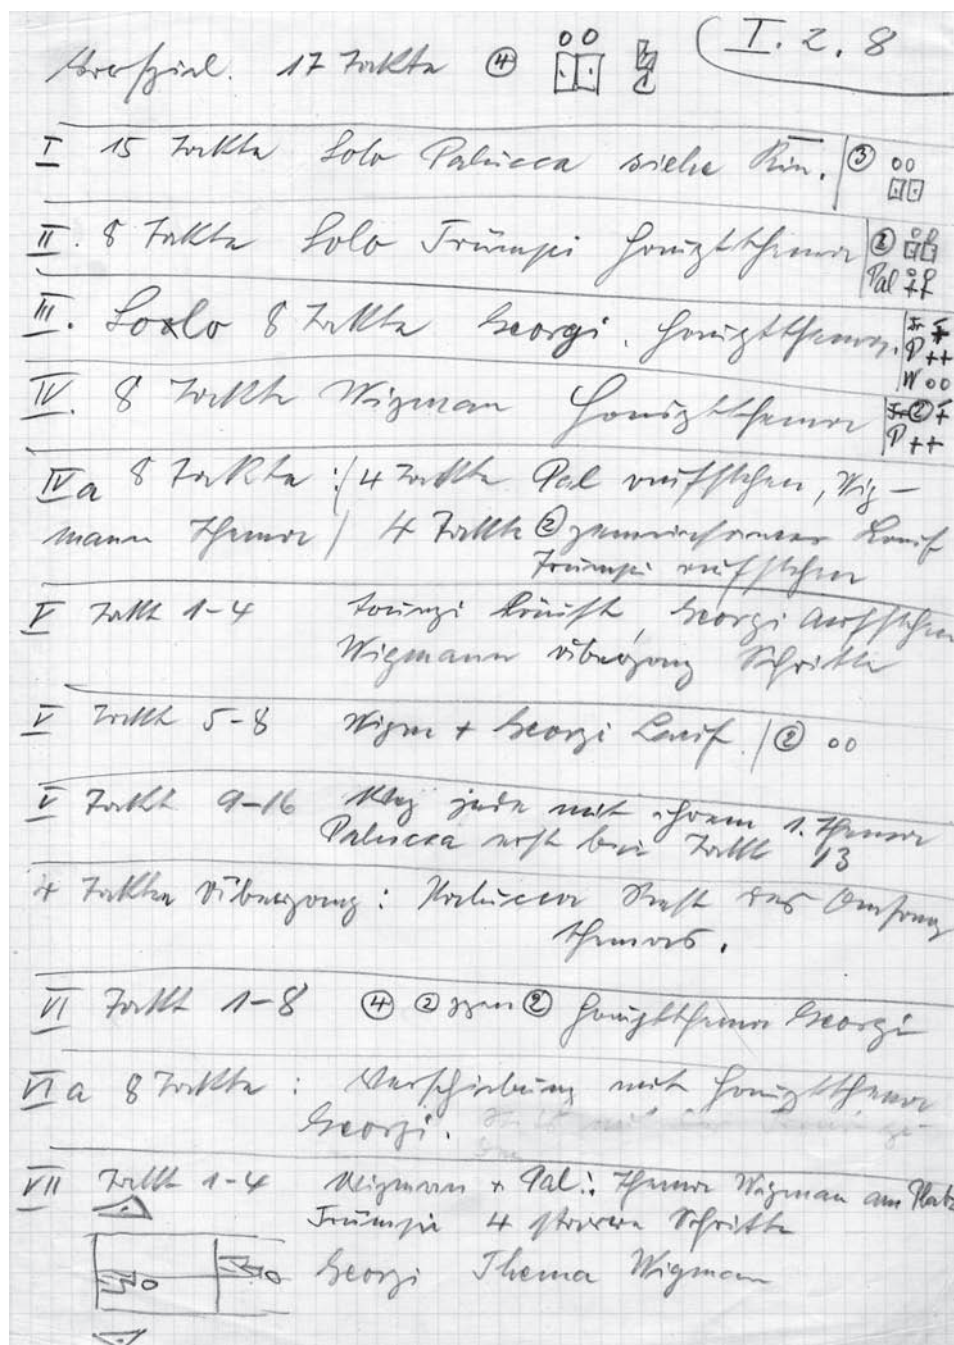 Vorspiel. 17 Takte ④ I. 2. 8
I 15 Takte Solo Palucca siehe ③
II. 8 Takte Solo Trümpi Hauptthema ②
Pal ++
III. Solo 8 Takte Georgi. Hauptthema. Tr +
P ++
W oo
IV. 8 Takte Wigman Hauptthema ② +
P ++
IV a 8 Takte :/ 4 Takte Pal aufstehen, Wig-
mann Thema / 4 Takte ② gemeinsamer Lauf
Trümpi aufstehen
V Takt 1-4 Trümpi läuft, Georgi Aufstehen
Wigmann Übergang Schritte
V Takt 5-8 Wigm + Georgi Lauf. / ② oo
V Takt 9-16 jede mit ihrem 1. Thema
Palucca erst bei Takt 13
4 Takte Übergang: Palucca Rest des Anfang
themas.
VI Takt 1-8 ④ ② gegen ② Hauptthema Georgi
VI a 8 Takte : Verschiebung mit Hauptthema
Georgi.
VII Takt 1-4 Wigman + Pal.: Thema Wigman am Platz
Trümpi 4 Schritte
Georgi Thema Wigman